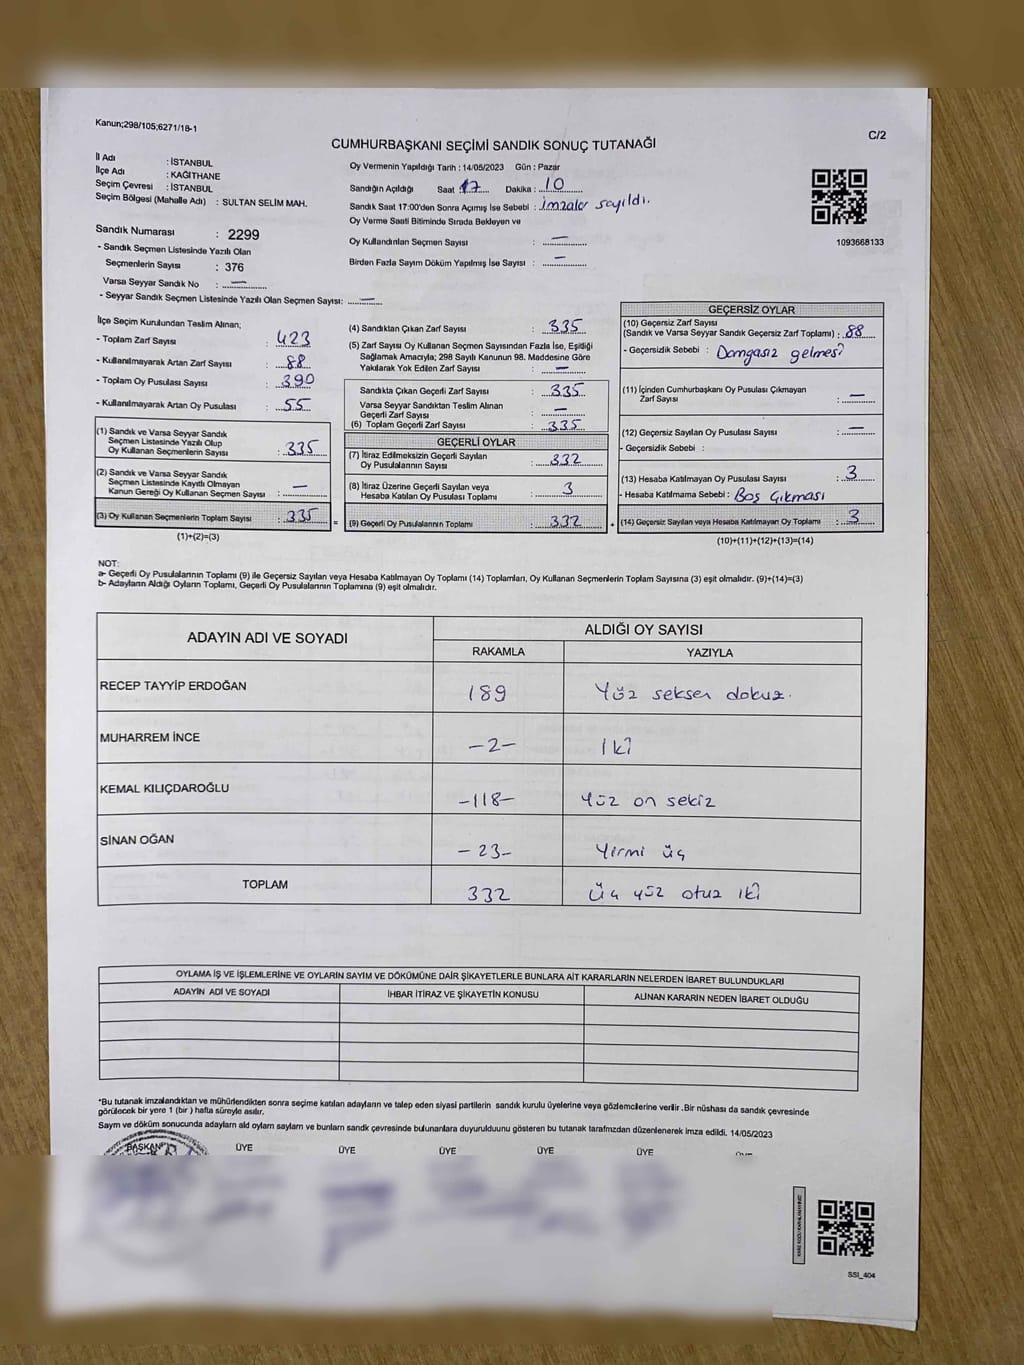 Kanun;298/105;6271/18-1
C/2
CUMHURBAŞKANI SEÇİMİ SANDIK SONUÇ TUTANAĞI
İl Adı : İSTANBUL
İlçe Adı : KAĞITHANE
Seçim Çevresi : İSTANBUL
Seçim Bölgesi (Mahalle Adı) : SULTAN SELİM MAH.
Sandık Numarası : 2299
- Sandık Seçmen Listesinde Yazılı Olan
Seçmenlerin Sayısı : 376
Varsa Seyyar Sandık No : —
- Seyyar Sandık Seçmen Listesinde Yazılı Olan Seçmen Sayısı: —
Oy Vermenin Yapıldığı Tarih : 14/05/2023 Gün : Pazar
Sandığın Açıldığı Saat 17 Dakika : 10
Sandık Saat 17:00'den Sonra Açımış İse Sebebi : İmzalar sayıldı.
Oy Verme Saati Bitiminde Sırada Bekleyen ve
Oy Kullandırılan Seçmen Sayısı : —
Birden Fazla Sayım Döküm Yapılmış İse Sayısı : —
1093668133
İlçe Seçim Kurulundan Teslim Alınan;
- Toplam Zarf Sayısı : 423
- Kullanılmayarak Artan Zarf Sayısı : 88
- Toplam Oy Pusulası Sayısı : 390
- Kullanılmayarak Artan Oy Pusulası : 55
(1) Sandık ve Varsa Seyyar Sandık
Seçmen Listesinde Yazılı Olup
Oy Kullanan Seçmenlerin Sayısı : 335
(2) Sandık ve Varsa Seyyar Sandık
Seçmen Listesinde Kayıtlı Olmayan
Kanun Gereği Oy Kullanan Seçmen Sayısı : —
(3) Oy Kullanan Seçmenlerin Toplam Sayısı : 335
(1)+(2)=(3)
(4) Sandıktan Çıkan Zarf Sayısı : 335
(5) Zarf Sayısı Oy Kullanan Seçmen Sayısından Fazla İse, Eşitliği
Sağlamak Amacıyla; 298 Sayılı Kanunun 98. Maddesine Göre
Yakılarak Yok Edilen Zarf Sayısı : —
Sandıkta Çıkan Geçerli Zarf Sayısı : 335
Varsa Seyyar Sandıktan Teslim Alınan
Geçerli Zarf Sayısı : —
(6) Toplam Geçerli Zarf Sayısı : 335
GEÇERLİ OYLAR
(7) İtiraz Edilmeksizin Geçerli Sayılan
Oy Pusulalarının Sayısı : 332
(8) İtiraz Üzerine Geçerli Sayılan veya
Hesaba Katılan Oy Pusulası Toplamı : 3
= (9) Geçerli Oy Pusulalarının Toplamı : 332 +
GEÇERSİZ OYLAR
(10) Geçersiz Zarf Sayısı
(Sandık ve Varsa Seyyar Sandık Geçersiz Zarf Toplamı) : 88
- Geçersizlik Sebebi : Damgasız gelmesi
(11) İçinden Cumhurbaşkanı Oy Pusulası Çıkmayan
Zarf Sayısı : —
(12) Geçersiz Sayılan Oy Pusulası Sayısı : —
- Geçersizlik Sebebi :
(13) Hesaba Katılmayan Oy Pusulası Sayısı : 3
- Hesaba Katılmama Sebebi : Boş Çıkması
(14) Geçersiz Sayılan veya Hesaba Katılmayan Oy Toplamı : 3
(10)+(11)+(12)+(13)=(14)
NOT:
a- Geçerli Oy Pusulalarının Toplamı (9) ile Geçersiz Sayılan veya Hesaba Katılmayan Oy Toplamı (14) Toplamları, Oy Kullanan Seçmenlerin Toplam Sayısına (3) eşit olmalıdır. (9)+(14)=(3)
b- Adayların Aldığı Oyların Toplamı, Geçerli Oy Pusulalarının Toplamına (9) eşit olmalıdır.
ADAYIN ADI VE SOYADI
ALDIĞI OY SAYISI
RAKAMLA YAZIYLA
RECEP TAYYİP ERDOĞAN 189 Yüz seksen dokuz.
MUHARREM İNCE -2- İki
KEMAL KILIÇDAROĞLU -118- Yüz on sekiz
SİNAN OĞAN -23- Yirmi üç
TOPLAM 332 Üç yüz otuz iki
OYLAMA İŞ VE İŞLEMLERİNE VE OYLARIN SAYIM VE DÖKÜMÜNE DAİR ŞİKAYETLERLE BUNLARA AİT KARARLARIN NELERDEN İBARET BULUNDUKLARI
ADAYIN ADI VE SOYADI İHBAR İTİRAZ VE ŞİKAYETİN KONUSU ALINAN KARARIN NEDEN İBARET OLDUĞU
*Bu tutanak imzalandıktan ve mühürlendikten sonra seçime katılan adayların ve talep eden siyasi partilerin sandık kurulu üyelerine veya gözlemcilerine verilir .Bir nüshası da sandık çevresinde
görülecek bir yere 1 (bir ) hafta süreyle asılır.
Sayım ve döküm sonucunda adayların ald oyların sayların ve bunların sandk çevresinde bulunanlara duyurulduunu gösteren bu tutanak tarafmzdan düzenlenerek imza edildi. 14/05/2023
BAŞKAN ÜYE ÜYE ÜYE ÜYE ÜYE
SSI_404